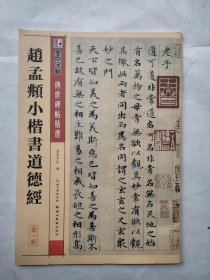 傳世碑帖精選
趙孟頫小楷書道德經
第一輯
老子
道可道非常道名可名非常名無名天地之始
有名萬物之母常無欲以觀其妙常有欲以觀
其徼此兩者同出而異名同謂之玄玄之又玄衆
妙之門
天下皆知美之爲美斯惡已皆知善之爲善斯不
善已故有無相生難易相成長短相形高